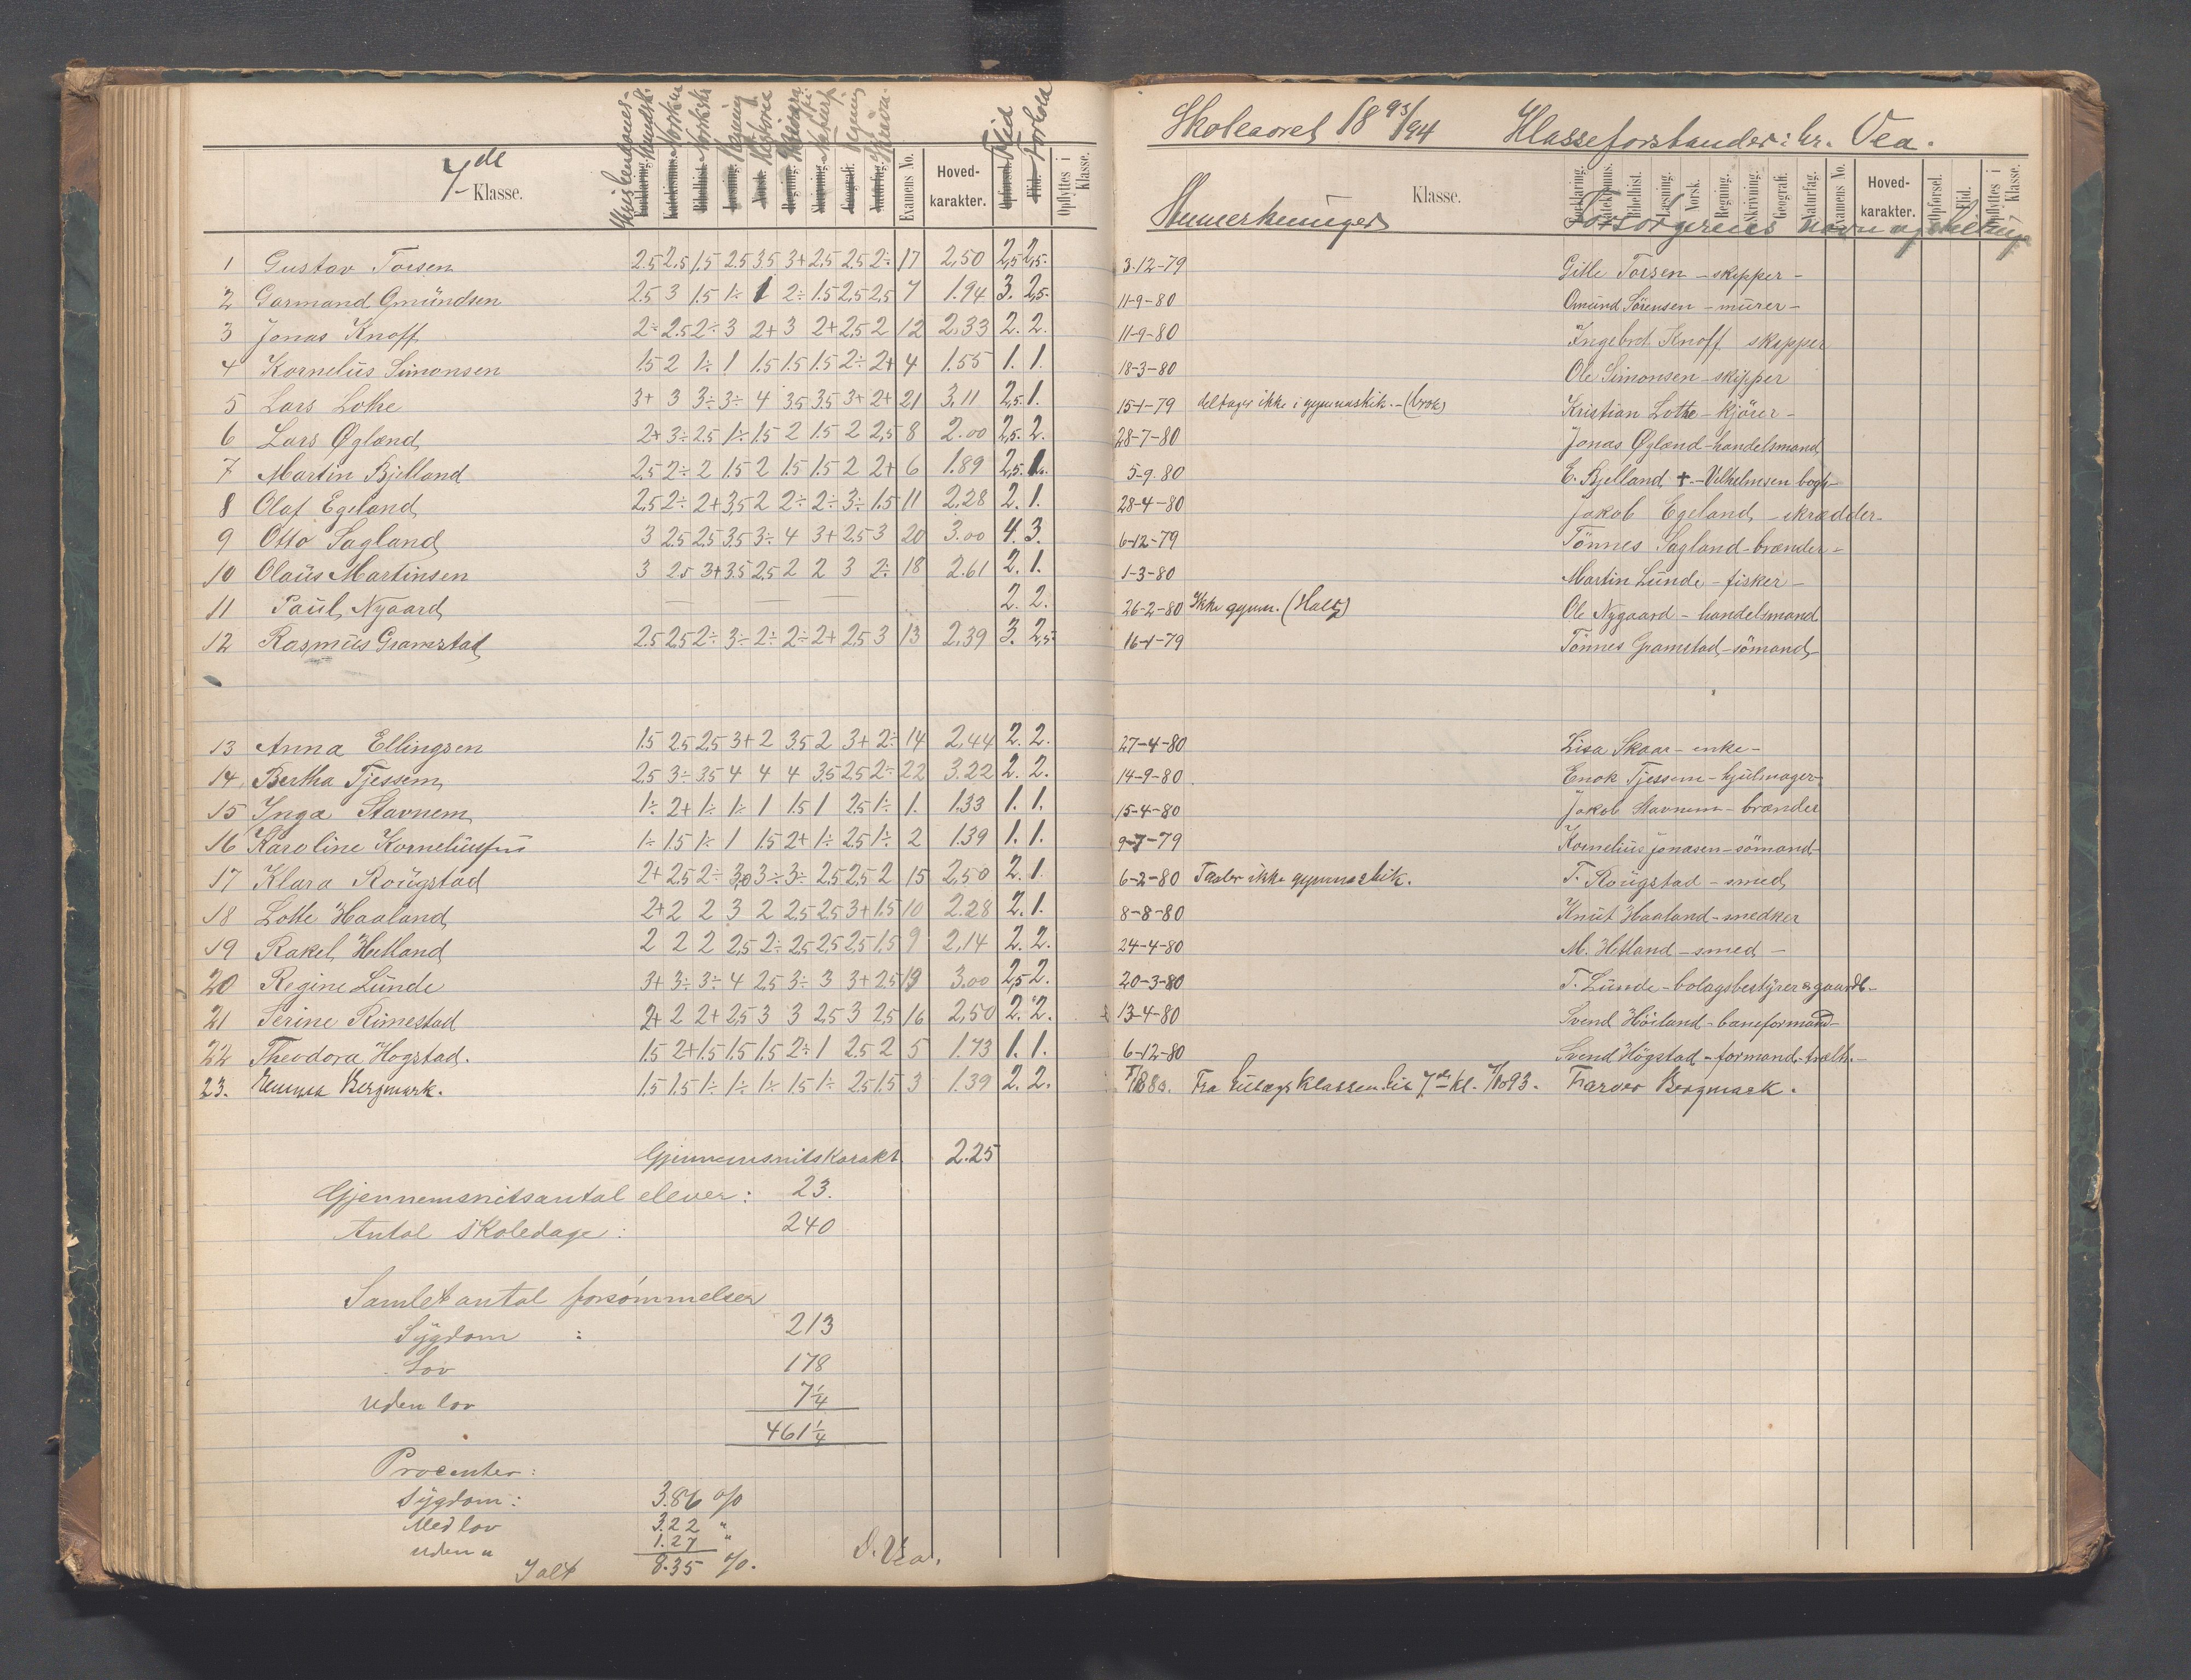 Skoleaaret 18 93/94 Klasseforstander: hr. Vea.
7de Klasse.
Kristendomskundsk. Norsk Historie Flid Forhold
Examens No. Hoved-karakter. Opflyttes i Klasse.
Anmerkninger Klasse.
Forklaring. Katekismus. Bibelhist. Læsning. Norsk. Regning. Skrivning. Geografi. Naturfag. Examens No. Hoved-karakter. Opførsel. Flid. Opflyttes i Klasse.
Forsørgerens navn og stilling
1 Gustav Torsen 2.5 2.5 1.5 2.5 3.5 3+ 2.5 2.5 2÷ 17 2,50 2,5 2,5. 3-12-79 Gitle Torsen - skipper -
2 Garmand Omündsen 2.5 3 1.5 1÷ 1 2÷ 1.5 2,5 2,5 7 1.94 3. 2,5. 11-9-80 Omünd Sörensen - mürer -
3 Jonas Knoff 2÷ 2.5 2÷ 3 2+ 3 2+ 2,5 2 12 2,33 2. 2. 11-9-80 Ingebrt. Knoff skipper
4 Kornelius Simonsen 1.5 2 1÷ 1 1.5 1.5 1.5 2÷ 2+ 4 1.55 1. 1. 18-3-80 Ole Simonsen - skipper
5 Lars Lothe 3+ 3 3÷ 3÷ 4 3.5 3.5 3+ 2+ 21 3,11 2,5. 1. 15-1-79 deltager ikke i gymnastik. - (brok) Kristian Lothe - kjörer -
6 Lars Øglænd 2+ 3÷ 2.5 1÷ 1.5 2 1.5 2 2,5 8 2.00 2,5. 2. 28-7-80 Jonas Øglænd - handelsmand
7 Martin Bjelland 2,5 2÷ 2 1.5 2 1.5 1.5 2 2+ 6 1.89 2,5. 1. 5-9.80 E. Bjelland ✝. - Vilhelmsen bogh-
8 Olaf Egeland 2,5 2÷ 2+ 3,5 2 2÷ 2÷ 3÷ 1.5 11 2,28 2. 1. 28-4-80 Jakob Egeland - skrædder -
9 Otto Sagland 3 2.5 2,5 3,5 3÷ 4 3+ 2.5 3 20 3.00 4. 3. 6-12-79 Tönnes Sagland - brænder -
10 Olaüs Martinsen 3 2.5 3+ 3.5 2,5 2 2 3 2÷ 18 2.61 2. 1. 1-3-80 Martin Lünde - fisker -
11 Paül Nygaard — — — 2. 2. 26-2-80 Ikke gymn. (Halt) Ole Nygaard - handelsmand
12 Rasmüs Gramstad 2.5 2.5 2÷ 3÷ 2÷ 2÷ 2+ 2.5 3 13 2,39 3. 2,5. 16-1-79 Tönnes Gramstad - sömand -
13 Anna Ellingsen 1.5 2.5 2.5 3+ 2 3.5 2 3+ 2÷ 14 2,44 2. 2. 27-4-80 Lisa Skaar - enke -
14 Bertha Tjessem 2,5 3÷ 3.5 4 4 4 3.5 2.5 2÷ 22 3.22 2. 2. 14-9-80 Enok Tjessem - hjulmager -
15 Inga Stavnem 1÷ 2+ 1÷ 1÷ 1 1.5 1 2.5 1÷ 1. 1.33 1. 1. 15-4-80 Jakob Stavnem - brænder
16 Karoline Korneliussen 1÷ 1.5 1÷ 1 1.5 2+ 1÷ 2.5 1÷ 2 1.39 1. 1. 9-7-79 Kornelius Jonasen - sömand -
17 Klara Roügstad 2+ 2.5 2÷ 3,0 3÷ 3÷ 2.5 2,5 2 15 2,50 2. 1. 6-2-80 Taaler ikke gymnastik. T. Roügstad - smed
18 Lotte Haaland 2+ 2 2 3 2 2.5 2.5 3+ 1.5 10 2.28 2. 1. 8-8-80 Knüt Haaland - snedker
19 Rakel Hetland 2 2 2 2,5 2÷ 2.5 2.5 2.5 1.5 9 2,14 2. 2. 24-4-80 M. Hetland - smed -
20 Regine Lünde 3+ 3÷ 3÷ 4 2.5 3÷ 3 3+ 2.5 19 3.00 2,5 2. 20-3-80 T. Lünde - bolagsbestyrer & gaardb. -
21 Serine Rimestad 2+ 2 2+ 2,5 3 3 2,5 3 2,5 16 2,50 2. 2. 13-4-80 Svend Höiland - baneformand -
22 Theodora Høgstad. 1.5 2+ 1.5 1.5 1.5 2÷ 1 2.5 2 5 1.73 1. 1. 6-12-80 Svend Högstad - formand -
23. Bergmark. 1.5 1.5 1÷ 1÷ 1÷ 1.5 1÷ 2.5 1.5 3 1.39 2. 2. Fra klassen til 7de kl. 93. Bergmark.
Gjennemsnitskarakt. 2.25
Gjennemsnitsantal elever: 23.
Antal skoledage: 240
Samlet antal forsömmelser
Sÿgdom : 213
Lov 178
Uden lov 7¼
461¼
Procenter:
Sÿgdom: 3.86 %
Med lov 3.22 "
uden " 1.27 "
Ialt 8.35 %. S. Vea.